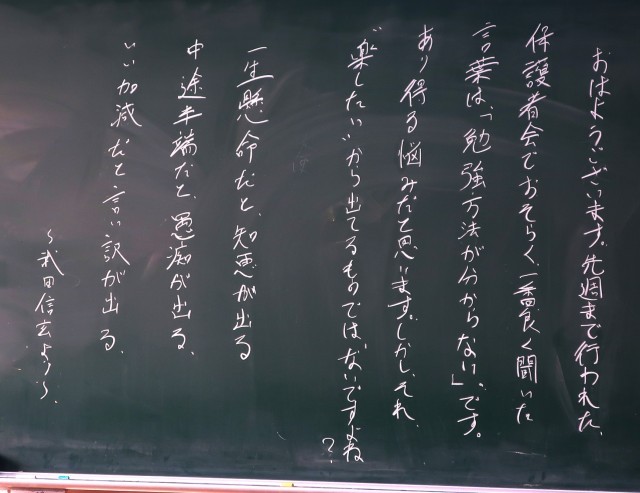 おはようございます。先週まで行われた、
保護者会でおそらく、一番良く聞いた
言葉は、「勉強方法が分からない」。です。
あり得る悩みだと思います。しかし、それ、
“楽したい”から出てるものでは、ないですよね？
一生懸命だと、知恵が出る
中途半端だと、愚痴が出る、
いい加減だと言い訳が出る、
～武田信玄より～、